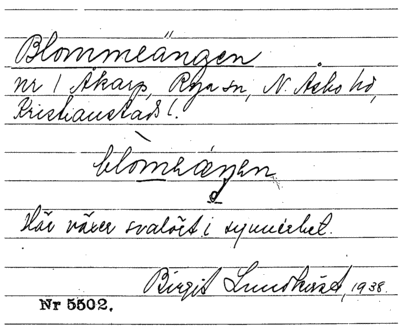 Blommeängen
nr 1 Åkarp, Röja sn, N. Åsbo hd,
Kristianstads l.
blòmeängen
Här växer svalört i synnerhet.
Birgit Lundkvist, 1938.
Nr 5502.